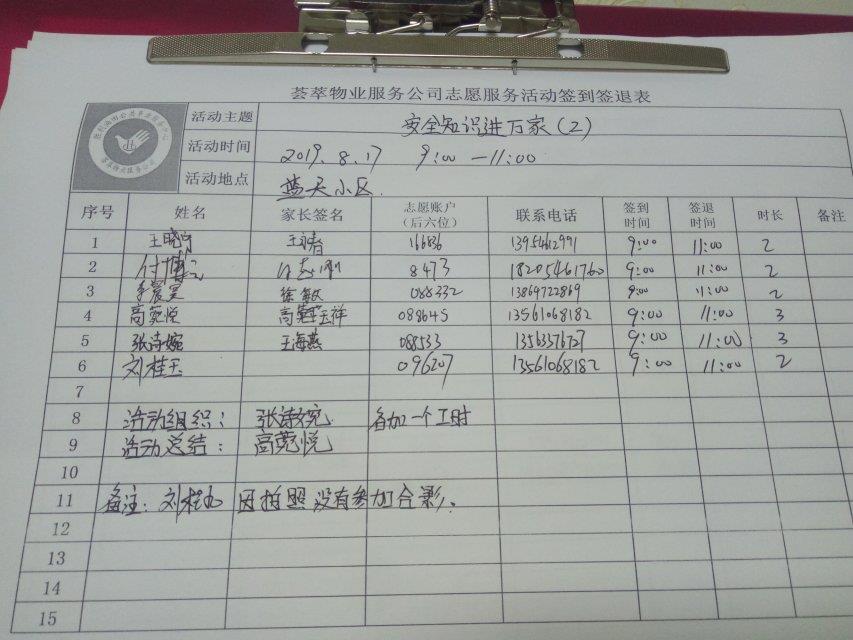 荟萃物业服务公司志愿服务活动签到签退表
活动主题 安全知识进万家(2)
活动时间 2019.8.17 9:00—11:00
活动地点 蓝天小区.
序号 姓名 家长签名 志愿账户(后六位) 联系电话 签到时间 签退时间 时长 备注
1 9:00 11:00 2
2 8473 18205461760 9:00 11:00 2
3 徐敏 088332 13869722869 9:00 11:00 2
4 高菀悦 088645 13561068182 9:00 11:00 3
5 张诗婉 王海燕 9:00 11:00 3
6 刘桂玉 096207 13561068182 9:00 11:00 2
7
8 活动组织: 张诗婉 各加一个工时
9 活动总结: 高菀悦
10
11 备注: 刘桂玉 因拍照没有参加合影.
12
13
14
15